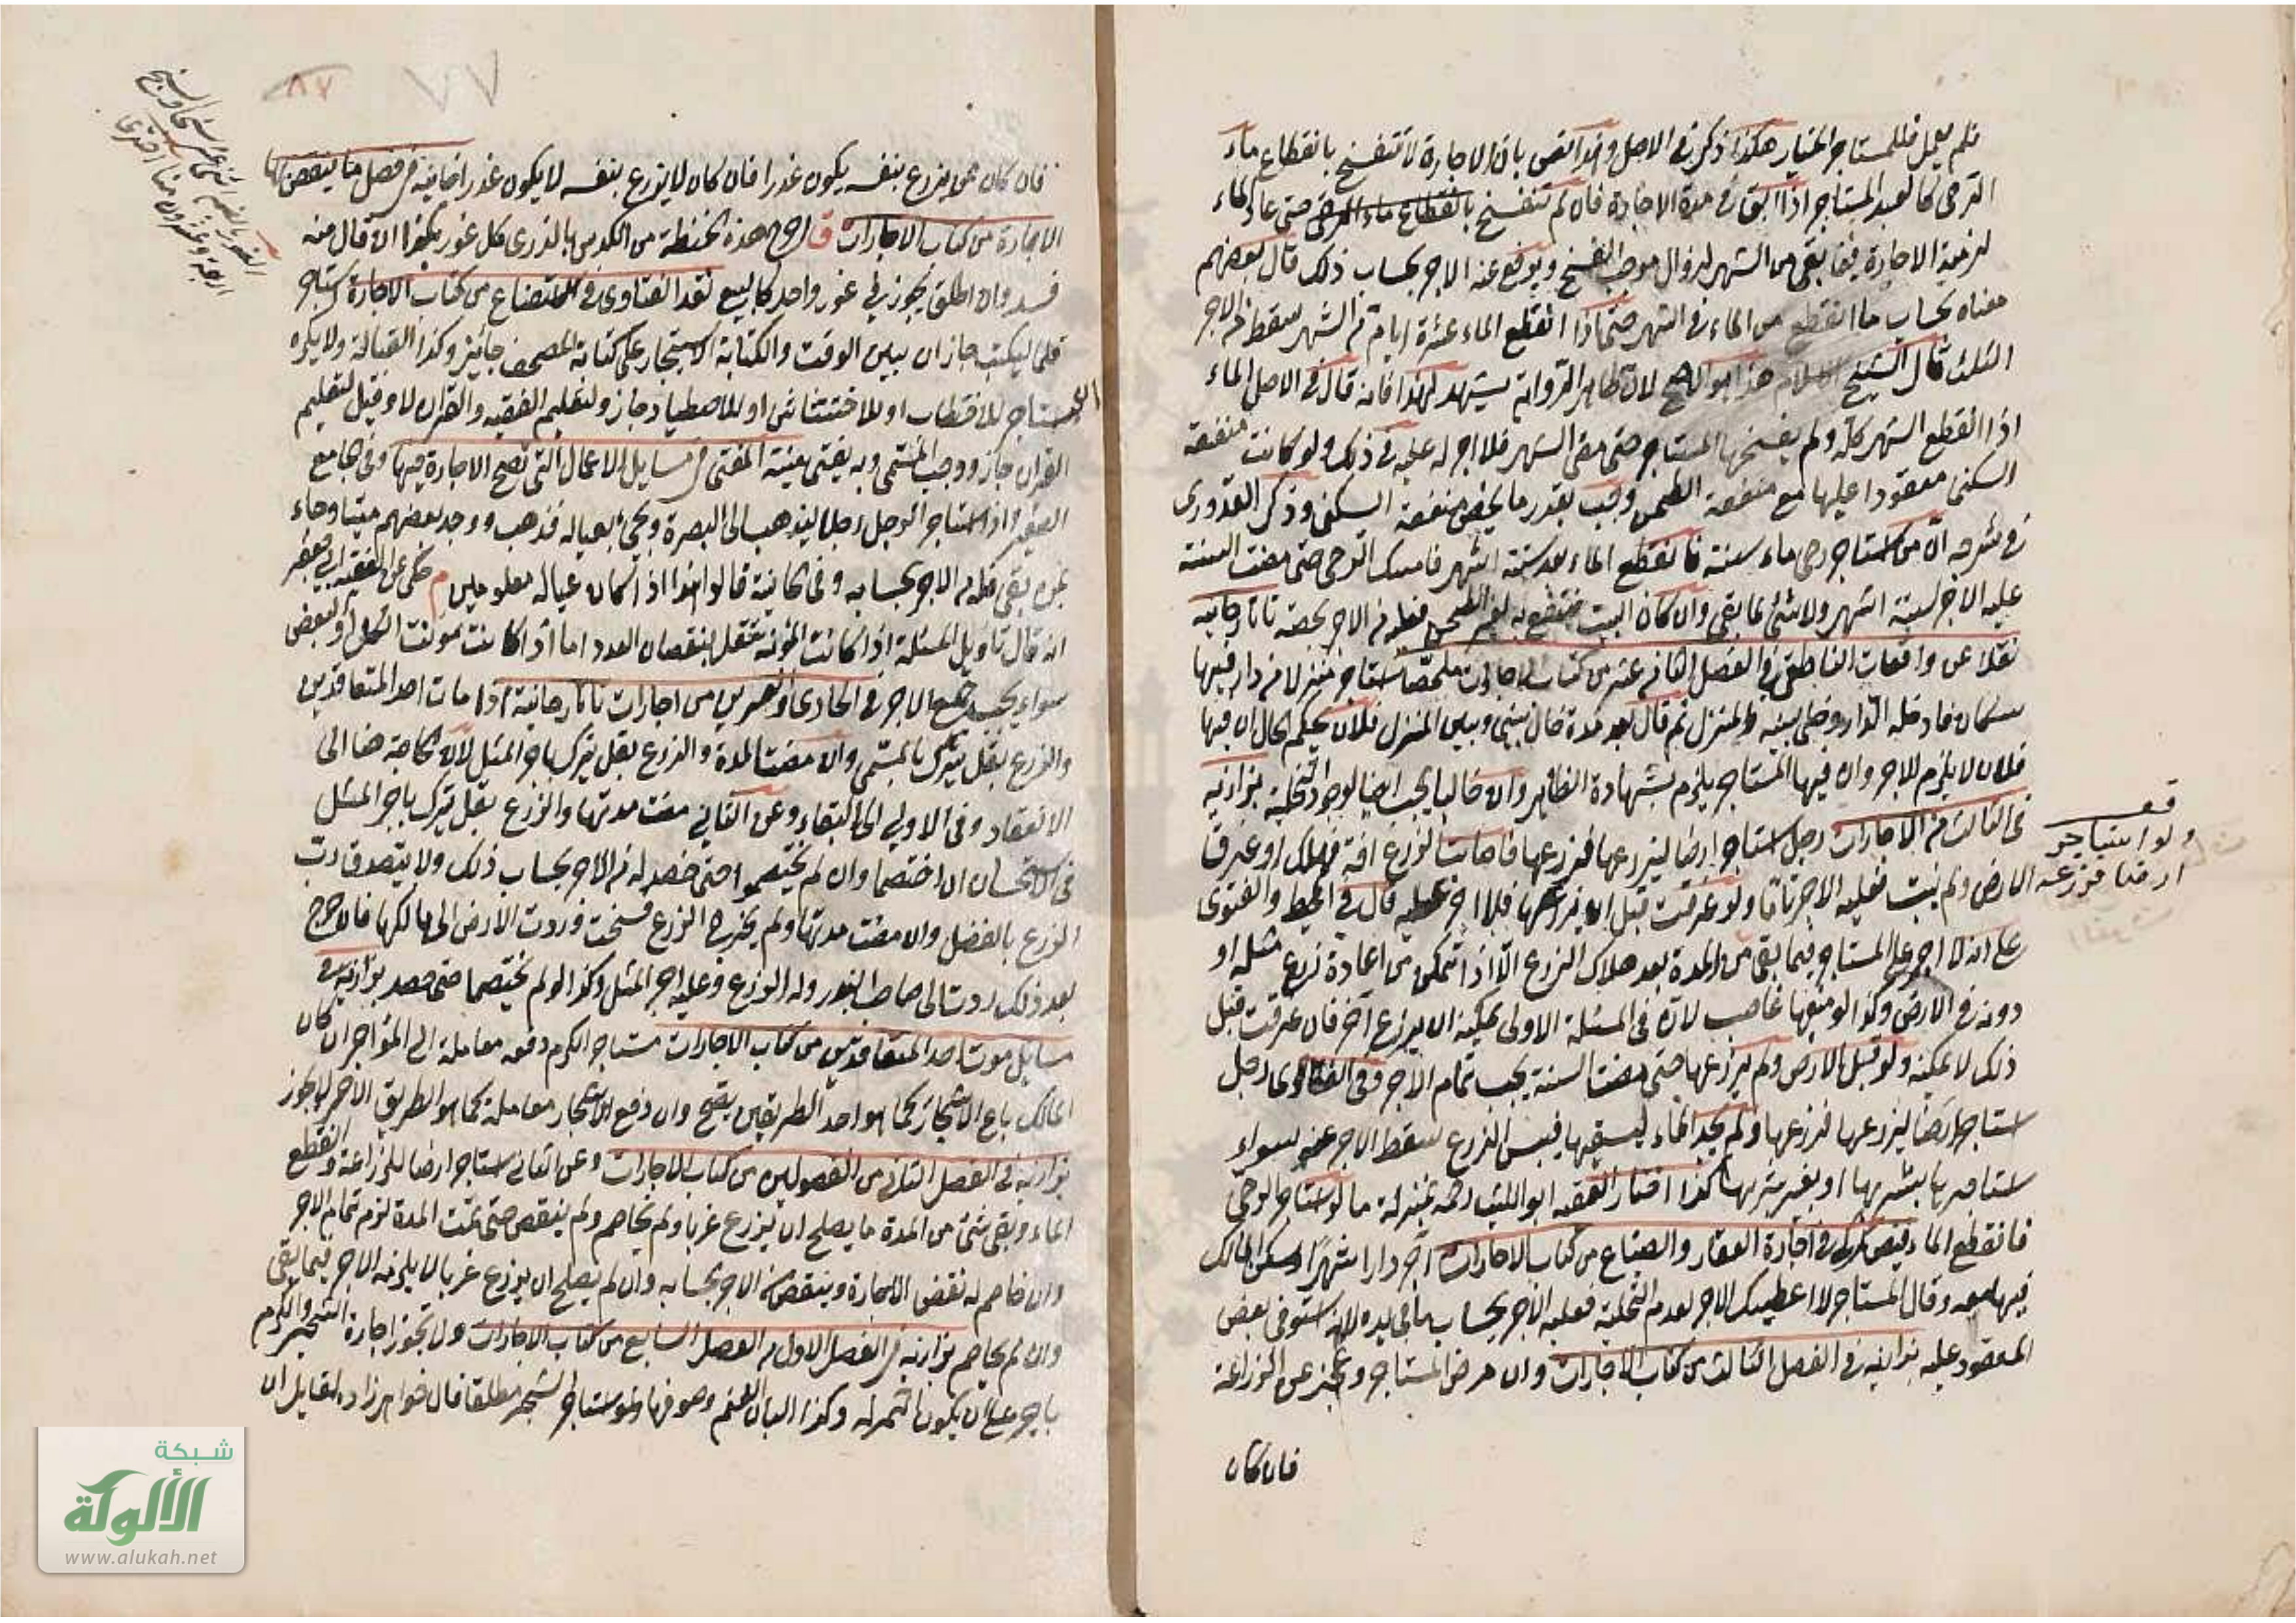 فلم يعمل فللمستاجر الخيار هكذا ذكر في الاصل وهذا نص بان الاجارة لا تنفسخ بانقطاع ماء
الرحى كالعبد المستاجر اذا ابق في مدة الاجارة فان لم تنفسخ بانقطاع ماء الرحى حتى عاد الماء
لزمته الاجارة فيما بقى من الشهر لزوال موجب الفسخ ويرفع عنه الاجر بحساب ذلك قال بعضهم
معناه بحساب ما انقطع من الماء في الشهر حتى اذا انقطع الماء عشرة ايام من الشهر سقط من الاجر
الثلث قال الشيخ الاسلام هذا هو الاصح لان ظاهر الرواية يشهد لهذا فانه قال في الاصل الماء
اذا انقطع الشهر كله ولم يفسخها المستاجر حتى مضى الشهر فلا اجر له عليه في ذلك ولو كانت منفعة
السكنى معقودا عليها مع منفعة الطحن وجب بقدر ما يخص منفعة السكنى وذكر القدورى
في شرحه ان من استاجر رحى ماء سنة فانقطع الماء بعد ستة اشهر فامسك الرحى حتى مضت السنة
عليه الاجر لستة اشهر ولا شئ لما بقى وان كان البيت منتفع به لغير الطحن فعليه من الاجر بحصته تاتارخانيه
نقلا عن واقعات الناطفى في الفصل الثاني عشر من كتاب الاجارات ملخصا استاجر منزلا من دار فيها
سكان فادخله الدار وخلى بينه والمنزل ثم قال بعد مدة حال بيني وبين المنزل فلان يحكم الحال ان فيها
فلان لا يلزم الاجر وان فيها المستاجر يلزم بشهادة الظاهر وان خاليا يجب ايضا لوجود التخلية بزازيه
في الثالث من الاجارات رجل استاجر ارضا ليزرعها فزرعها فاصابت الزرع افة فهلك او غرق
ولو استاجر
ارضا فزرعه
الارض ولم ينبت فعليه الاجر تاما ولو غرقت قبل ان يزرعها فلا اجر عليه قال في المحيط والفتوى
على انه لا اجر على المستاجر فيما بقى من المدة بعد هلاك الزرع الا اذا تمكن من اعادة زرع مثله او
دونه في الارض وكذا لو منعها غاصب لانه في المسئلة الاولى يمكنه ان يزرع آخر فان غرقت قبل
ذلك لا يمكنه ولو قبل الارض ولم يزرعها حتى مضت السنة يجب تمام الاجر وفي الفتاوى رجل
استاجر ارضا ليزرعها فزرعها ولم يجد الماء ليسقيها فيبس الزرع سقط الاجر عنه سواء
استاجرها بشربها او بغير شربها كذا اختار الفقيه ابو الليث رحمه بمنزلة ما لو استاجر الرحى
فانقطع الماء فيض كركى في اجارة العقار والضياع من كتاب الاجارات آجر دارا شهرا وسكن المالك
فيها معه وقال المستاجر لا اعطيك الاجر لعدم التخلية فعليه الاجر بحساب ما في يده لانه استوفى بعض
المعقود عليه بزازيه في الفصل الثالث من كتاب الاجارات وان مرض المستاجر وعجز عن الزراعة
فان كان

٧٧
٨٧
فان كان ممن يزرع بنفسه يكون عذرا فان كان لا يزرع بنفسه لا يكون عذرا خانيه في فصل ما ينتقض بها
الاجارة من كتاب الاجارات هذه بحنطة من الكدس بالذرى كل غور بكذا ان قال منه
فسد وان اطلق يجوز في غور واحد كالبيع نقد الفتاوى في الاستصناع من كتاب الاجارة استاجر
قلما ليكتب جاز ان بين الوقت والكتابة الاستيجار على كتابة المصحف جائز وكذا القبالة ولا يكره
استاجر للاحتطاب او للاحتشاش او للاصطياد جاز ولتعليم الفقه والقران لا وقيل لتعليم
القران جاز ووجب المسمى وبه يفتى منية المفتى في مسايل الاعمال التى تصح الاجارة فيها وفي الجامع
الصغير واذا استاجر الرجل رجلا ليذهب الى البصرة ويجئ بعياله فذهب ووجد بعضهم ميتا وجاء
بمن بقى فله من الاجر بحسابه وفي الخانية قالوا هذا اذا كان عياله معلومين م حكى عن الفقيه ابي جعفر
انه قال تاويل المسئلة اذا كانت المؤنة تقل بنقصان العدد اما اذا كانت مؤنت الكل او البعض
سواء يجب جميع الاجر في الحادى والعشرين من اجارات تاتارخانية اذا مات احد المتعاقدين
والزرع بقل يترك بالمسمى وان مضت المدة والزرع بقل يترك باجر المثل لان الحاجة هنا الى
الانعقاد وفي الاولى الى البقاء وعن الثاني مضت مدتها والزرع بقل يترك باجر المثل
في الاستحسان ان اختصما وان لم يختصموا حتى حصد له من الاجر بحساب ذلك ولا يتصدق رب
الزرع بالفضل وان مضت مدتها ولم يخرج الزرع فسخت وردت الارض الى مالكها فان خرج
بعد ذلك ردت الى صاحب البذر وله الزرع وعليه اجر المثل وكذا لو لم يختصما حتى حصد بزازيه في
مسايل موت احد المتعاقدين من كتاب الاجارات مستاجر الكرم دفعه معاملة الى المؤاجر ان كان
المالك باع الاشجار كما هو احد الطريقين يصح وان دفع الاشجار معاملة كما هو الطريق الاخر لا يجوز
بزازيه في الفصل الثاني من الفصولين من كتاب الاجارات وعن الثاني استاجر ارضا للزراعة وانقطع
الماء وبقى شئ من المدة ما يصلح ان يزرع غربا ولم يخاصم ولم ينقض حتى تمت المدة لزم تمام الاجر
وان خاصم له نقض الاجارة وينقص الاجر بحسابه وان لم يصلح ان يزرع غربا لا يلزمه الاجر فيما بقى
وان لم يخاصم بزازيه في الفصل الاول من الفصل السابع من كتاب الاجارات ولا تجوز اجارة الشجر والكرم
باجر على ان يكون الثمر له وكذا البان الغنم وصوفها ولو استاجر الشجر مطلقا قال خواهر زاده لقايل ان
شبكة
الألوكة
www.alukah.net